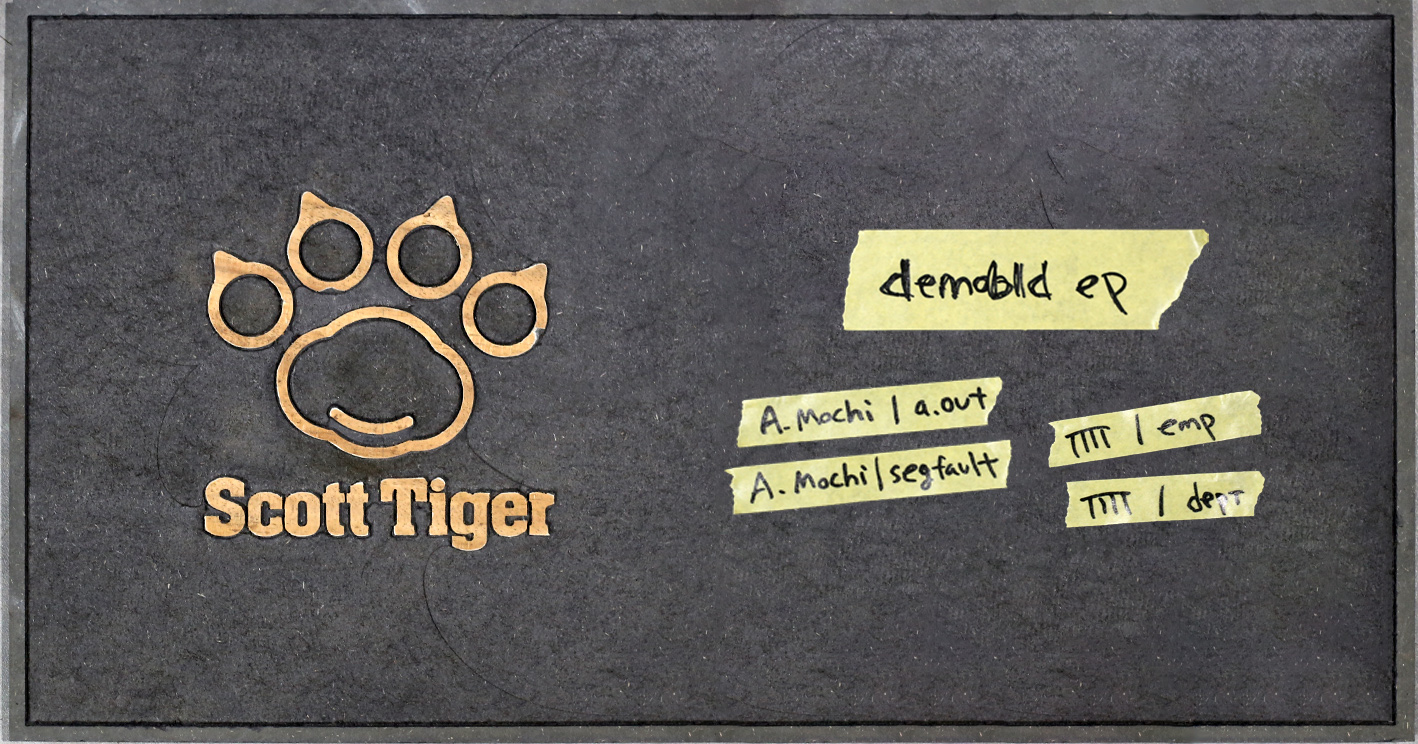 Scott Tiger
demobld ep
A. Mochi / a.out
A. Mochi / segfault
TTTT / emp
TTTT / dept